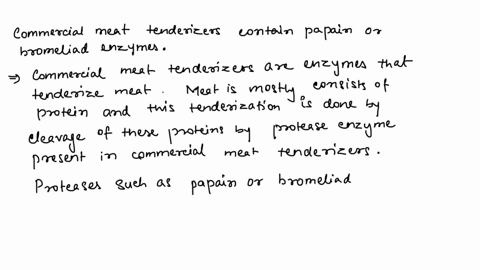 Commercial meat tenderizers contain papain or
bromeliad enzymes.
⇒ Commercial meat tenderizers are enzymes that
tenderize meat. Meat is mostly consists of
protein and this tenderization is done by
cleavage of these proteins by protease enzyme
present in commercial meat tenderizers.
Proteases such as papain or bromeliad